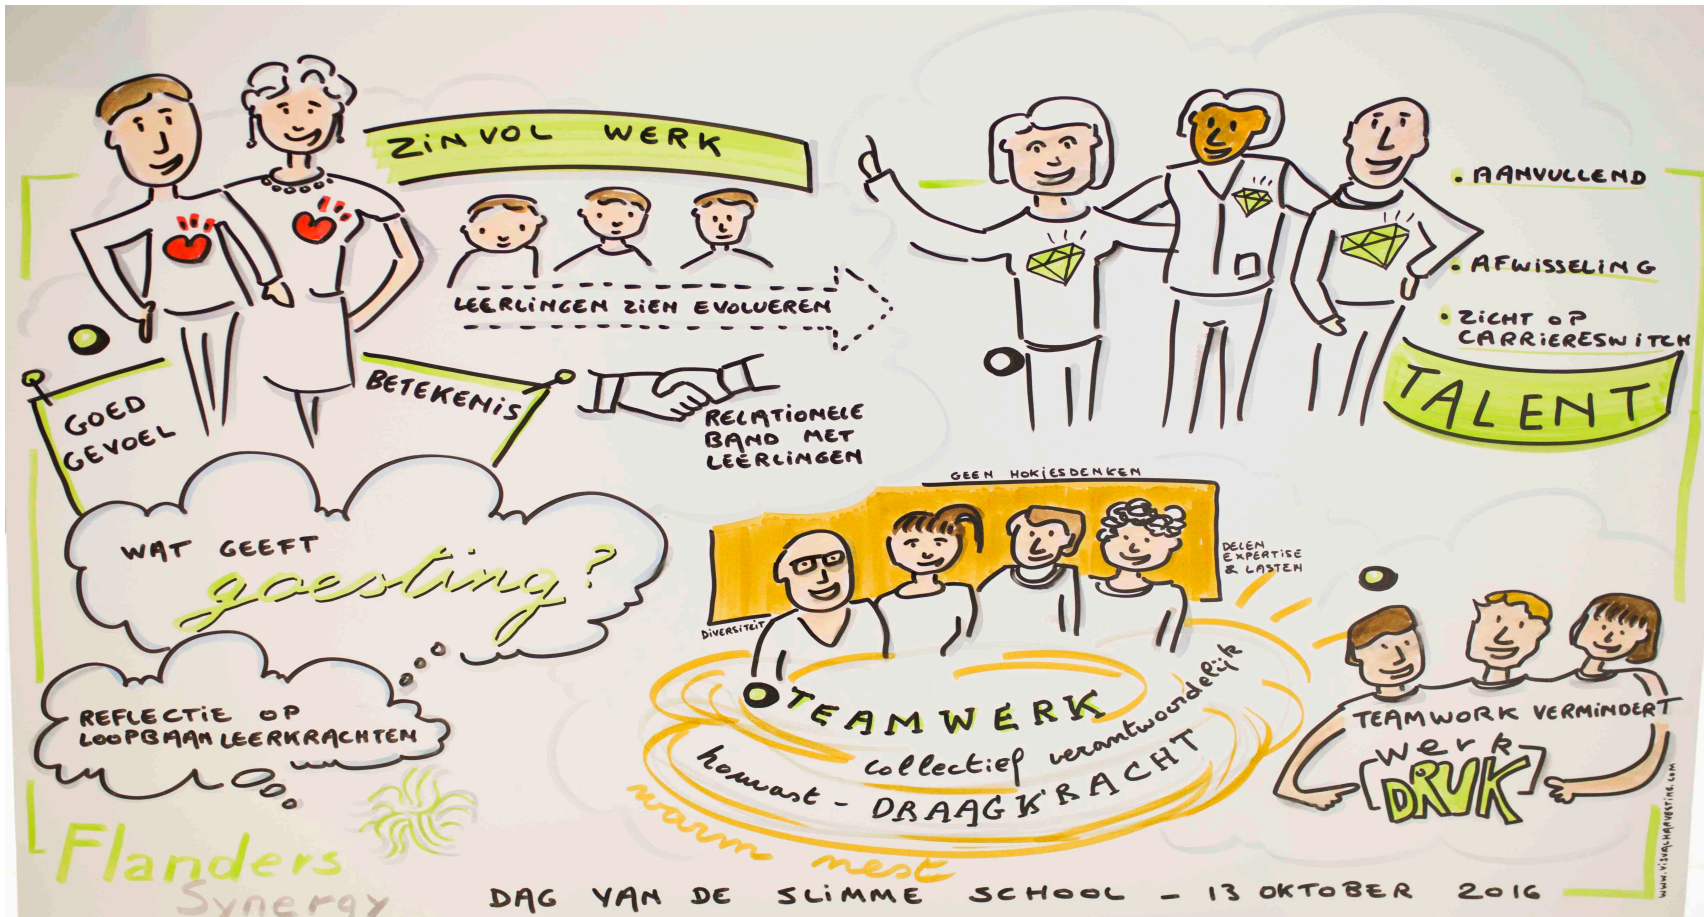 ZINVOL WERK
LEERLINGEN ZIEN EVOLUEREN
GOED
GEVOEL
BETEKENIS
RELATIONELE
BAND MET
LEERLINGEN
WAT GEEFT
goesting?
REFLECTIE OP
LOOPBAAN LEERKRACHTEN
• AANVULLEND
• AFWISSELING
• ZICHT OP
CARRIERESWITCH
TALENT
GEEN HOKJESDENKEN
DELEN
EXPERTISE
& LASTEN
DIVERSITEIT
TEAMWERK
collectief verantwoordelijk
houvast - DRAAGKRACHT
warm nest
TEAMWORK VERMINDERT
werk
DRUK
Flanders
Synergy
DAG VAN DE SLIMME SCHOOL - 13 OKTOBER 2016
WWW.VISUALHARVESTING.COM